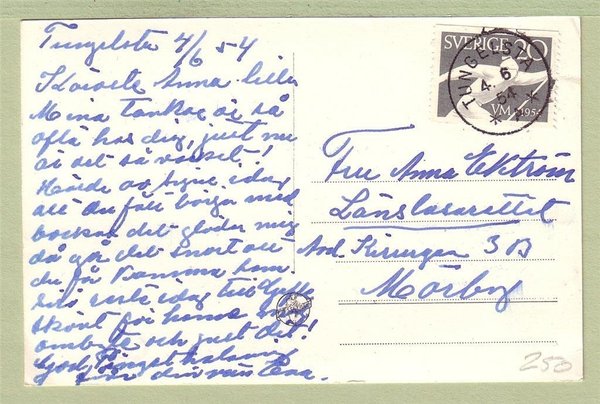 Tungelsta 4/6 54
Käraste Anna lilla
Mina tankar är så
ofta hos dig, just nu
är det så vackert!
Hörde av Signe idag
att du fått börja med
bockar det gläder mig
då går det snart att
du får komma hem.
idag till
skönt för henne
ombyte och just det!
God Pingsthelg
din vän
SVERIGE 20
VM 1954
TUNGELSTA
4.6
54
Fru Anna Ekström
Länslasarettet
Avd. Kirurgen 3 B
Mörby
250